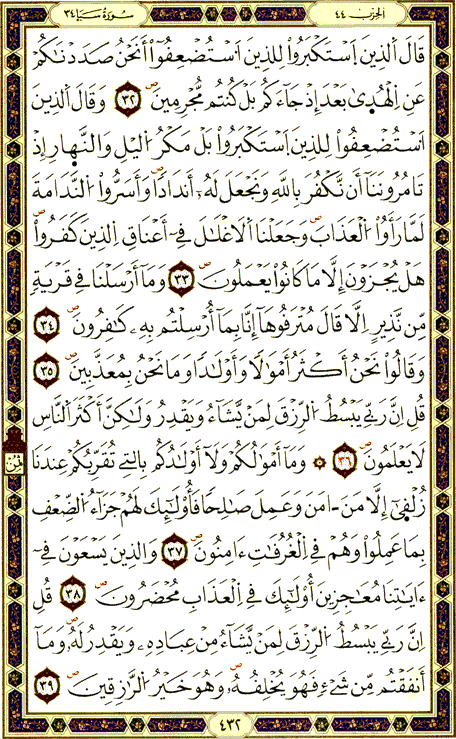 الحزب ٤٤
سورة سبإ ٣٤
قَالَ اَ۬لذِينَ اَ۪سْتَكْبَرُواْ لِلذِينَ اَ۟سْتُضْعِفُوٓاْ أَنَحْنُ صَدَدْنَٰكُمْ
عَنِ اِ۬لْهُد۪ىٰ بَعْدَ إِذْ جَآءَكُم بَلْ كُنتُم مُّجْرِمِينَۖ ٣٢ وَقَالَ اَ۬لذِينَ
اَ۟سْتُضْعِفُواْ لِلذِينَ اَ۪سْتَكْبَرُواْ بَلْ مَكْرُ اُ۬ليْلِ وَالنَّه۪ارِ إِذْ
تَامُرُونَنَآ أَن نَّكْفُرَ بِاللَّهِ وَنَجْعَلَ لَهُۥٓ أَندَاداٗۖ وَأَسَرُّواْ اُ۬لنَّدَامَةَ
لَمَّا رَأَوُاْ اُ۬لْعَذَابَۖ وَجَعَلْنَا اَ۬لَاغْلَٰلَ فِےٓ أَعْنَاقِ اِ۬لذِينَ كَفَرُواْۖ
هَلْ يُجْزَوْنَ إِلَّا مَا كَانُواْ يَعْمَلُونَۖ ٣٣ وَمَآ أَرْسَلْنَا فِے قَرْيَةٖ
مِّن نَّذِيرٍ اِلَّا قَالَ مُتْرَفُوهَآ إِنَّا بِمَآ أُرْسِلْتُم بِهِۦ كَٰفِرُونَۖ ٣٤
وَقَالُواْ نَحْنُ أَكْثَرُ أَمْوَٰلاٗ وَأَوْلَٰداٗ وَمَا نَحْنُ بِمُعَذَّبِينَۖ ٣٥
قُلِ اِنَّ رَبِّے يَبْسُطُ اُ۬لرِّزْقَ لِمَنْ يَّشَآءُ وَيَقْدِرُ وَلَٰكِنَّ أَكْثَرَ اَ۬لنَّاسِ
لَا يَعْلَمُونَۖ ٣٦ ۞ وَمَآ أَمْوَٰلُكُمْ وَلَآ أَوْلَٰدُكُم بِالتِے تُقَرِّبُكُمْ عِندَنَا
ثمن
زُلْف۪ىٰٓ إِلَّا مَنَ اٰمَنَ وَعَمِلَ صَٰلِحاٗ فَأُوْلَٰٓئِكَ لَهُمْ جَزَآءُ اُ۬لضِّعْفِ
بِمَا عَمِلُواْ وَهُمْ فِے اِ۬لْغُرُفَٰتِ ءَامِنُونَۖ ٣٧ وَالذِينَ يَسْعَوْنَ فِےٓ
ءَايَٰتِنَا مُعَٰجِزِينَ أُوْلَٰٓئِكَ فِے اِ۬لْعَذَابِ مُحْضَرُونَۖ ٣٨ قُلِ
اِنَّ رَبِّے يَبْسُطُ اُ۬لرِّزْقَ لِمَنْ يَّشَآءُ مِنْ عِبَادِهِۦ وَيَقْدِرُ لَهُۥۖ وَمَآ
أَنفَقْتُم مِّن شَےْءٖ فَهُوَ يُخْلِفُهُۥۖ وَهُوَ خَيْرُ اُ۬لرَّٰزِقِينَۖ ٣٩
٤٣٢